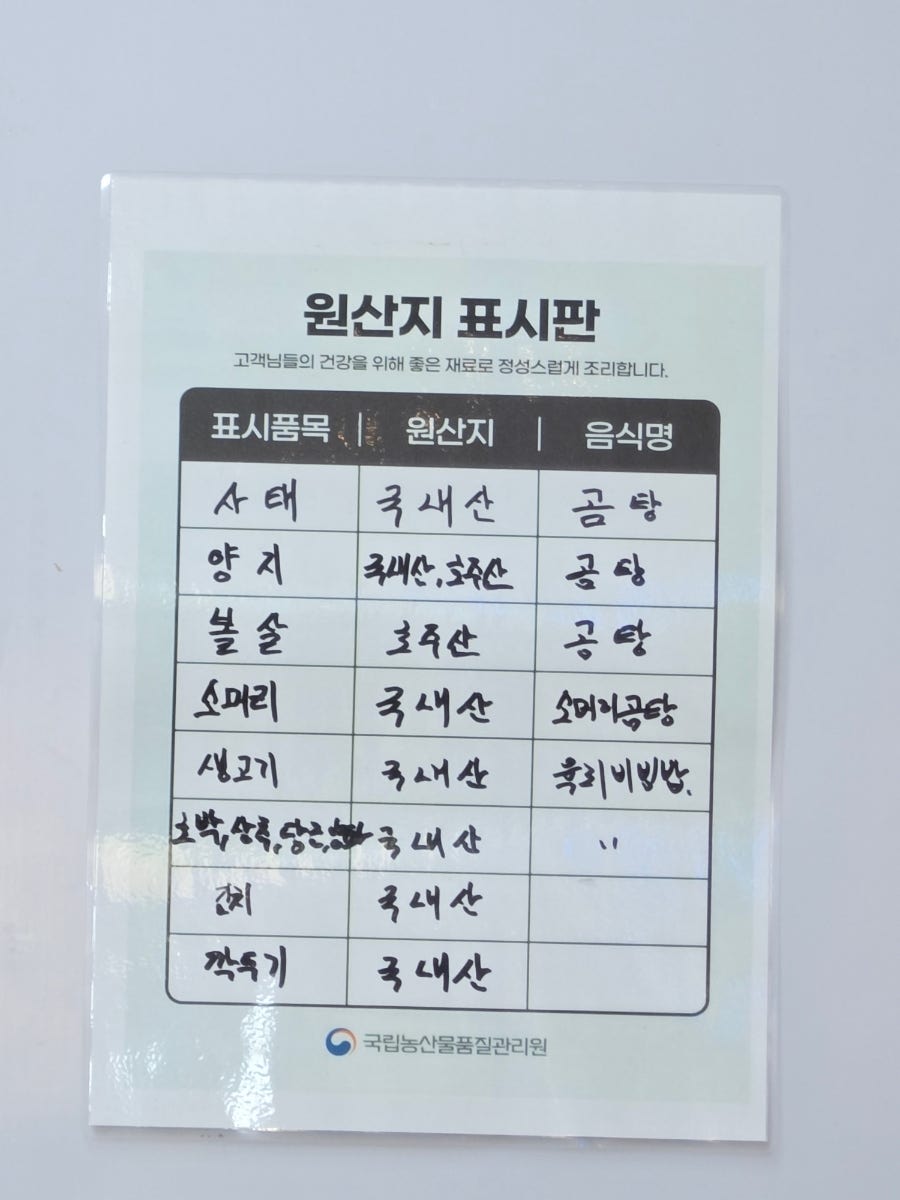 원산지 표시판
고객님들의 건강을 위해 좋은 재료로 정성스럽게 조리합니다.
표시품목 | 원산지 | 음식명
사태 국내산 곰탕
양지 국내산, 호주산 곰탕
볼살 호주산 곰탕
소머리 국내산 소머리곰탕
생고기 국내산 육회비빔밥.
호박, 상추, 당근, 국내산 〃
김치 국내산
깍두기 국내산
국립농산물품질관리원